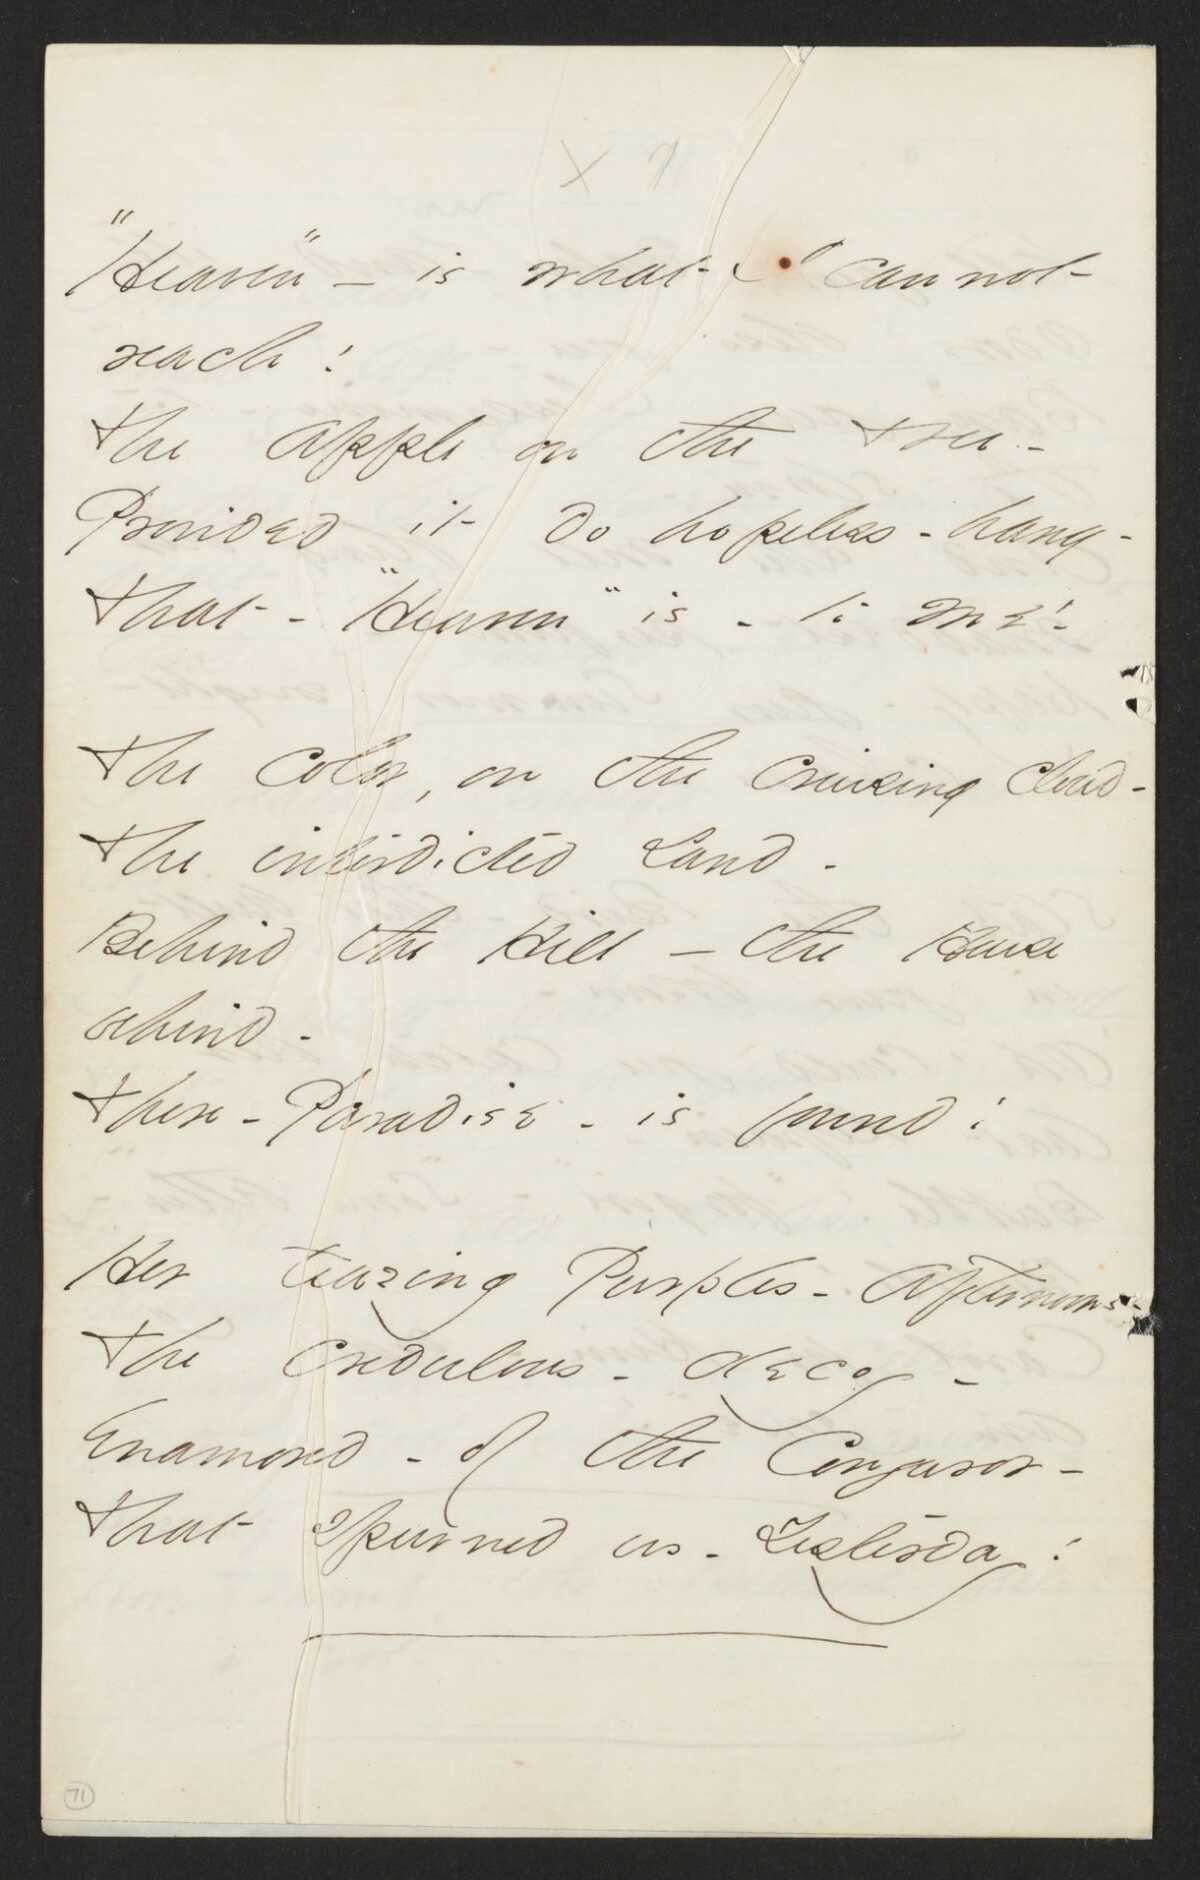 x
"Heaven" – is what I cannot
reach!
The Apple on the Tree –
Provided it do hopeless – hang –
That – "Heaven" is – to Me!
The Color, on the Cruising Cloud –
The interdicted Land –
Behind the Hill – the House
behind –
There – Paradise – is found!
Her teazing Purples – Afternoons –
The Credulous – decoy –
Enamored – of the Conjuror –
That spurned us – Yesterday!
71